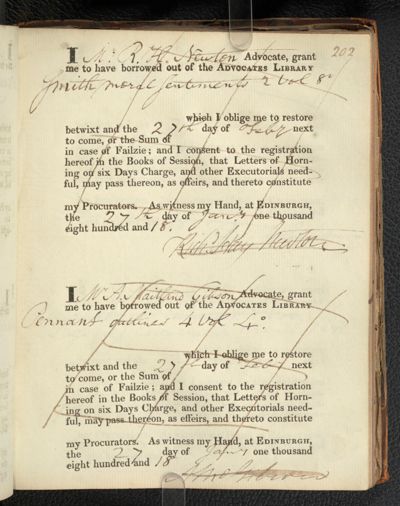 202
I Mr R. H. Newton Advocate, grant
me to have borrowed out of the ADVOCATES LIBRARY
Smith, moral sentiments 2 vol 8º
which I oblige me to restore
betwixt and the 27th day of Feby next
to come, or the Sum of
in case of Failzie; and I consent to the registration
hereof in the Books of Session, that Letters of Horn-
ing on six Days Charge, and other Executorials need-
ful, may pass thereon, as effeirs, and thereto constitute
my Procurators. As witness my Hand, at EDINBURGH,
the 27th day of Jany one thousand
eight hundred and 18.
Newton
I Mr A. Maitland Gibson Advocate, grant
me to have borrowed out of the ADVOCATES LIBRARY
Pennant outlines 4 vol 4º.
which I oblige me to restore
betwixt and the 27 day of Feby next
to come, or the Sum of
in case of Failzie; and I consent to the registration
hereof in the Books of Session, that Letters of Horn-
ing on six Days Charge, and other Executorials need-
ful, may pass thereon, as effeirs, and thereto constitute
my Procurators. As witness my Hand, at EDINBURGH,
the 27 day of Jany one thousand
eight hundred and 18